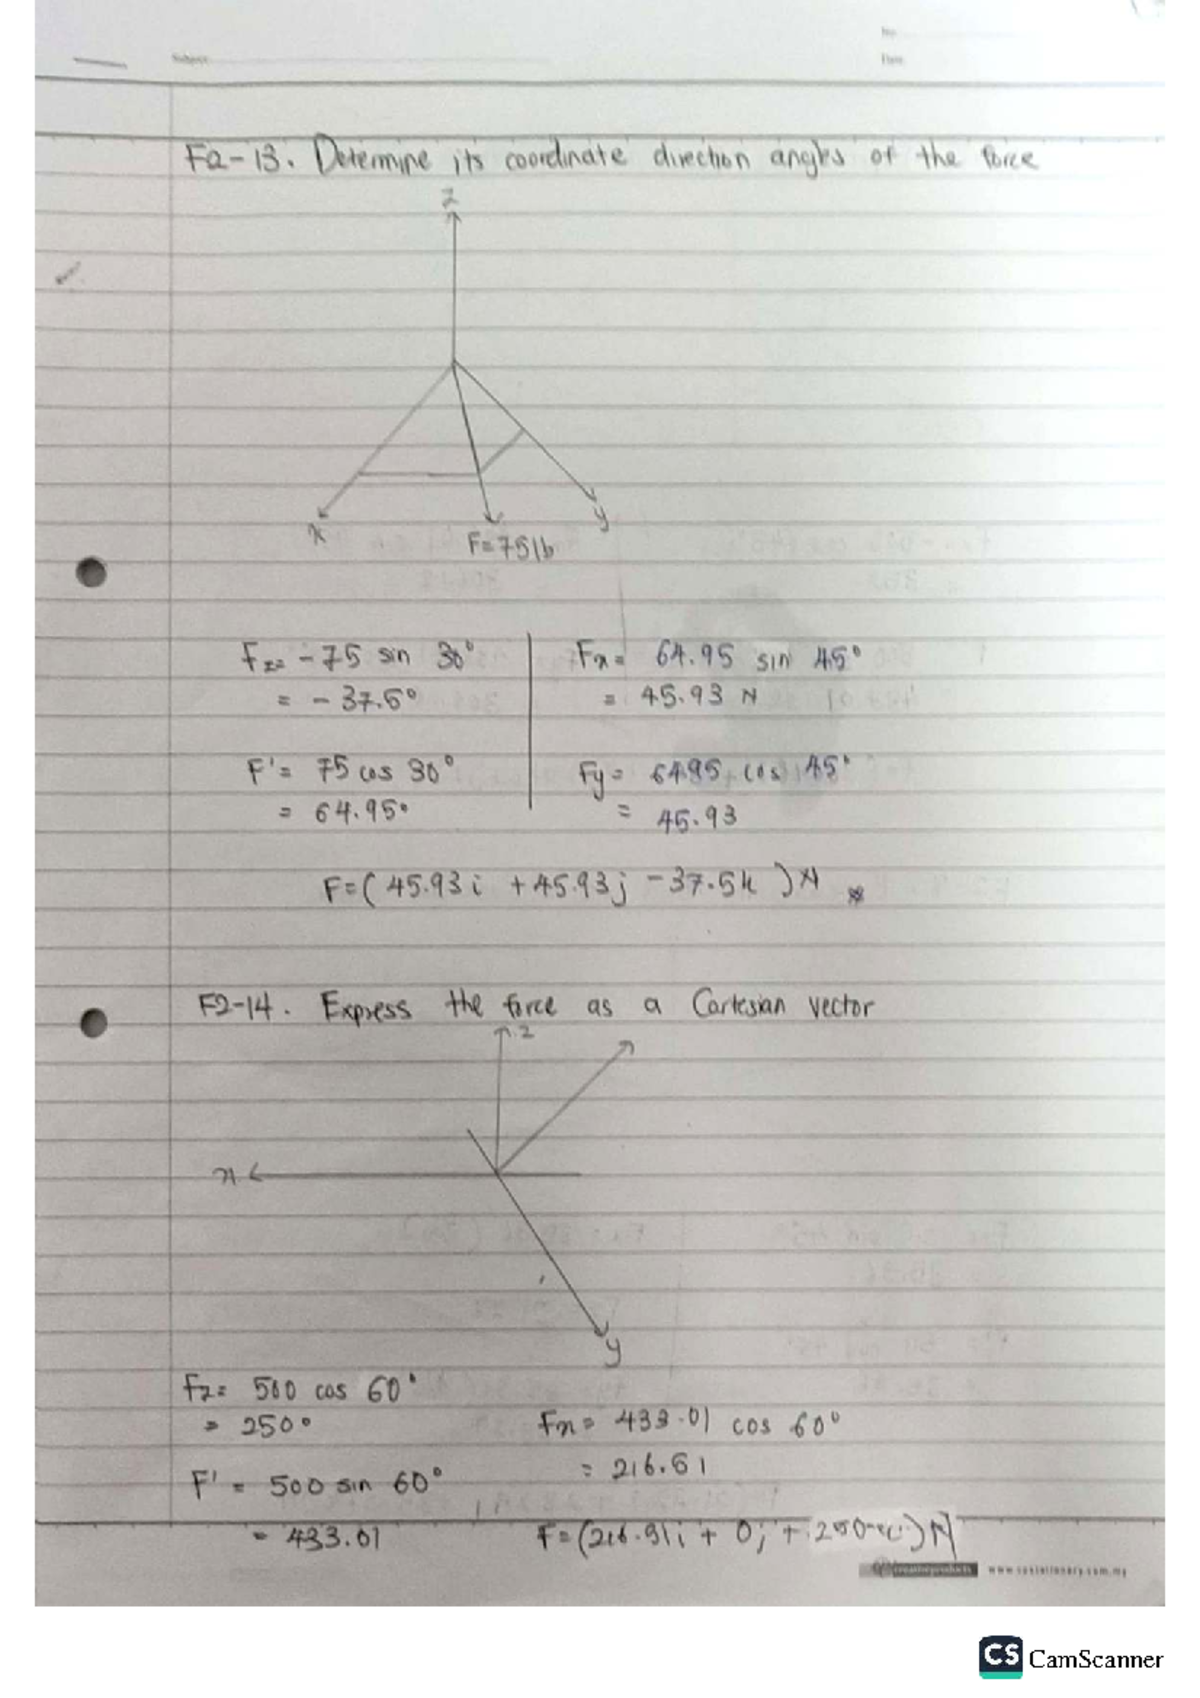 No:
Date:
Subject:
F2-13. Determine its coordinate direction angles of the force
z
x
y
F=75lb
Fz= -75 sin 30°
= -37.5°
F'= 75 cos 30°
= 64.95°
Fx= 64.95 sin 45°
= 45.93 N
Fy= 64.95 cos 45°
= 45.93
F=( 45.93i + 45.93j - 37.5k ) N
F2-14. Express the force as a Cartesian vector
z
x
y
Fz= 500 cos 60°
= 250°
F' = 500 sin 60°
= 433.01
Fx= 433.01 cos 60°
= 216.51
F=(216.51i + 0j +
CS CamScanner